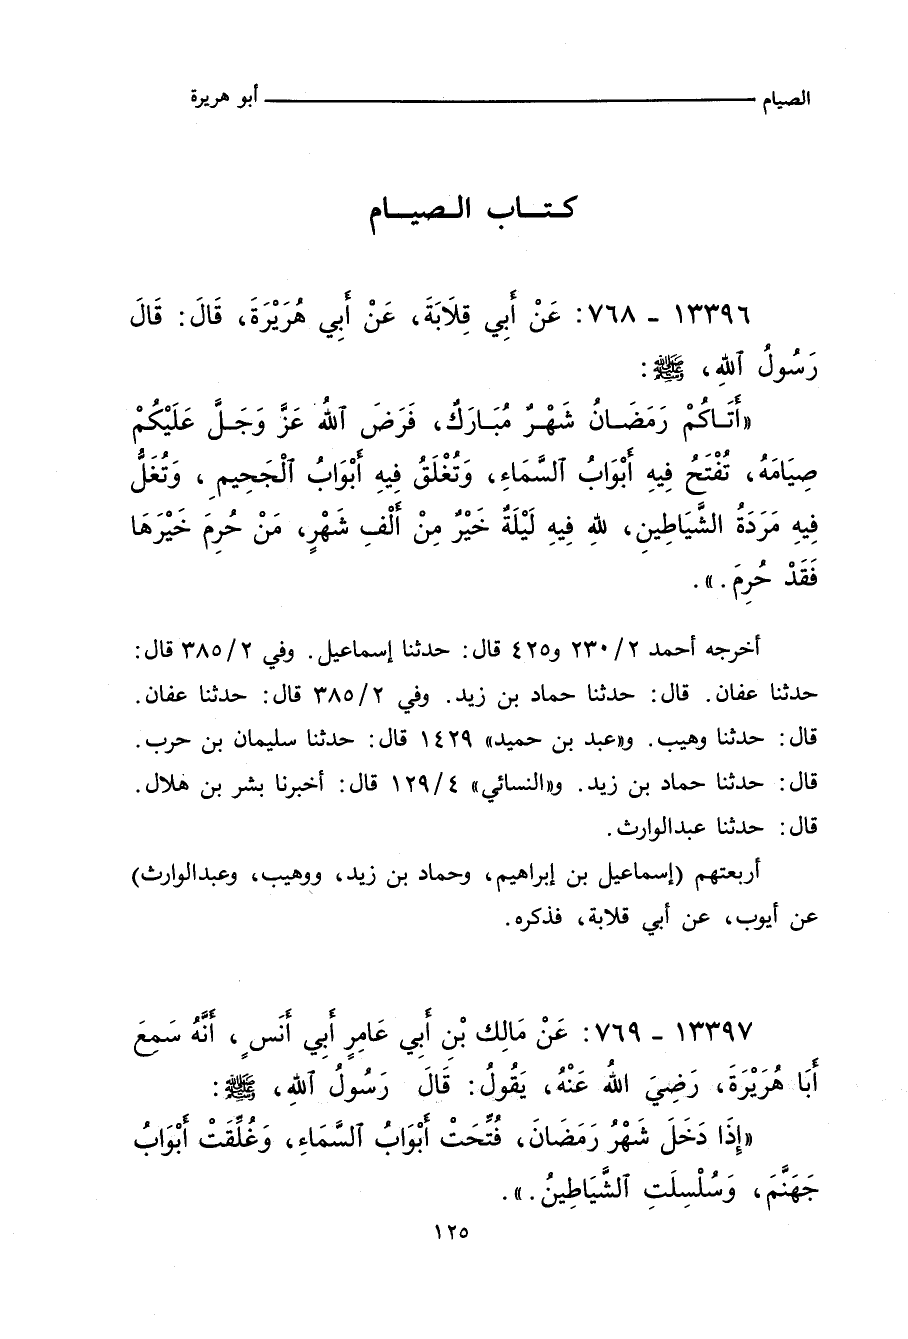 الصيام ــــــــــــــــــ أبو هريرة
كـتـــاب الـصيـــام
١٣٣٩٦ ـ ٧٦٨: عَنْ أَبِي قِلَابَةَ، عَنْ أَبِي هُرَيْرَةَ، قَالَ: قَالَ
رَسُولُ ٱللهِ، ﷺ:
«أَتَـاكُمْ رَمَضَـانُ شَهْـرٌ مُبَـارَكٌ، فَرَضَ ٱللهُ عَزَّ وَجَـلَّ عَلَيْكُمْ
صِيَامَهُ، تُفْتَحُ فِيهِ أَبْوَابُ ٱلسَّمَاءِ، وَتُغْلَقُ فِيهِ أَبْوَابُ ٱلْجَحِيمِ، وَتُغَلُّ
فِيهِ مَرَدَةُ ٱلشَّيَاطِينِ، لله فِيهِ لَيْلَةٌ خَيْرٌ مِنْ أَلْفِ شَهْرٍ، مَنْ حُرِمَ خَيْرَهَا
فَقَدْ حُرِمَ.».
أخرجه أحمد ٢/٢٣٠ و٤٢٥ قال: حدثنا إسماعيل. وفي ٢/٣٨٥ قال:
حدثنا عفان. قال: حدثنا حماد بن زيد. وفي ٢/٣٨٥ قال: حدثنا عفان.
قال: حدثنا وهيب. و«عبد بن حميد» ١٤٢٩ قال: حدثنا سليمان بن حرب.
قال: حدثنا حماد بن زيد. و«النسائي» ٤/١٢٩ قال: أخبرنا بشر بن هلال.
قال: حدثنا عبدالوارث.
أربعتهم (إسماعيل بن إبراهيم، وحماد بن زيد، ووهيب، وعبدالوارث)
عن أيوب، عن أبي قلابة، فذكره.
١٣٣٩٧ ـ ٧٦٩: عَنْ مَالِكِ بْنِ أَبِي عَامِرٍ أَبِي أَنَسٍ، أَنَّهُ سَمِعَ
أَبَا هُرَيْرَةَ، رَضِيَ اللهُ عَنْهُ، يَقُولُ: قَالَ رَسُولُ ٱللهِ، ﷺ:
«إِذَا دَخَلَ شَهْرُ رَمَضَانَ، فُتِّحَتْ أَبْوَابُ ٱلسَّمَاءِ، وَغُلِّقَتْ أَبْوَابُ
جَهَنَّمَ، وَسُلْسِلَتِ ٱلشَّيَاطِينُ.».
١٢٥